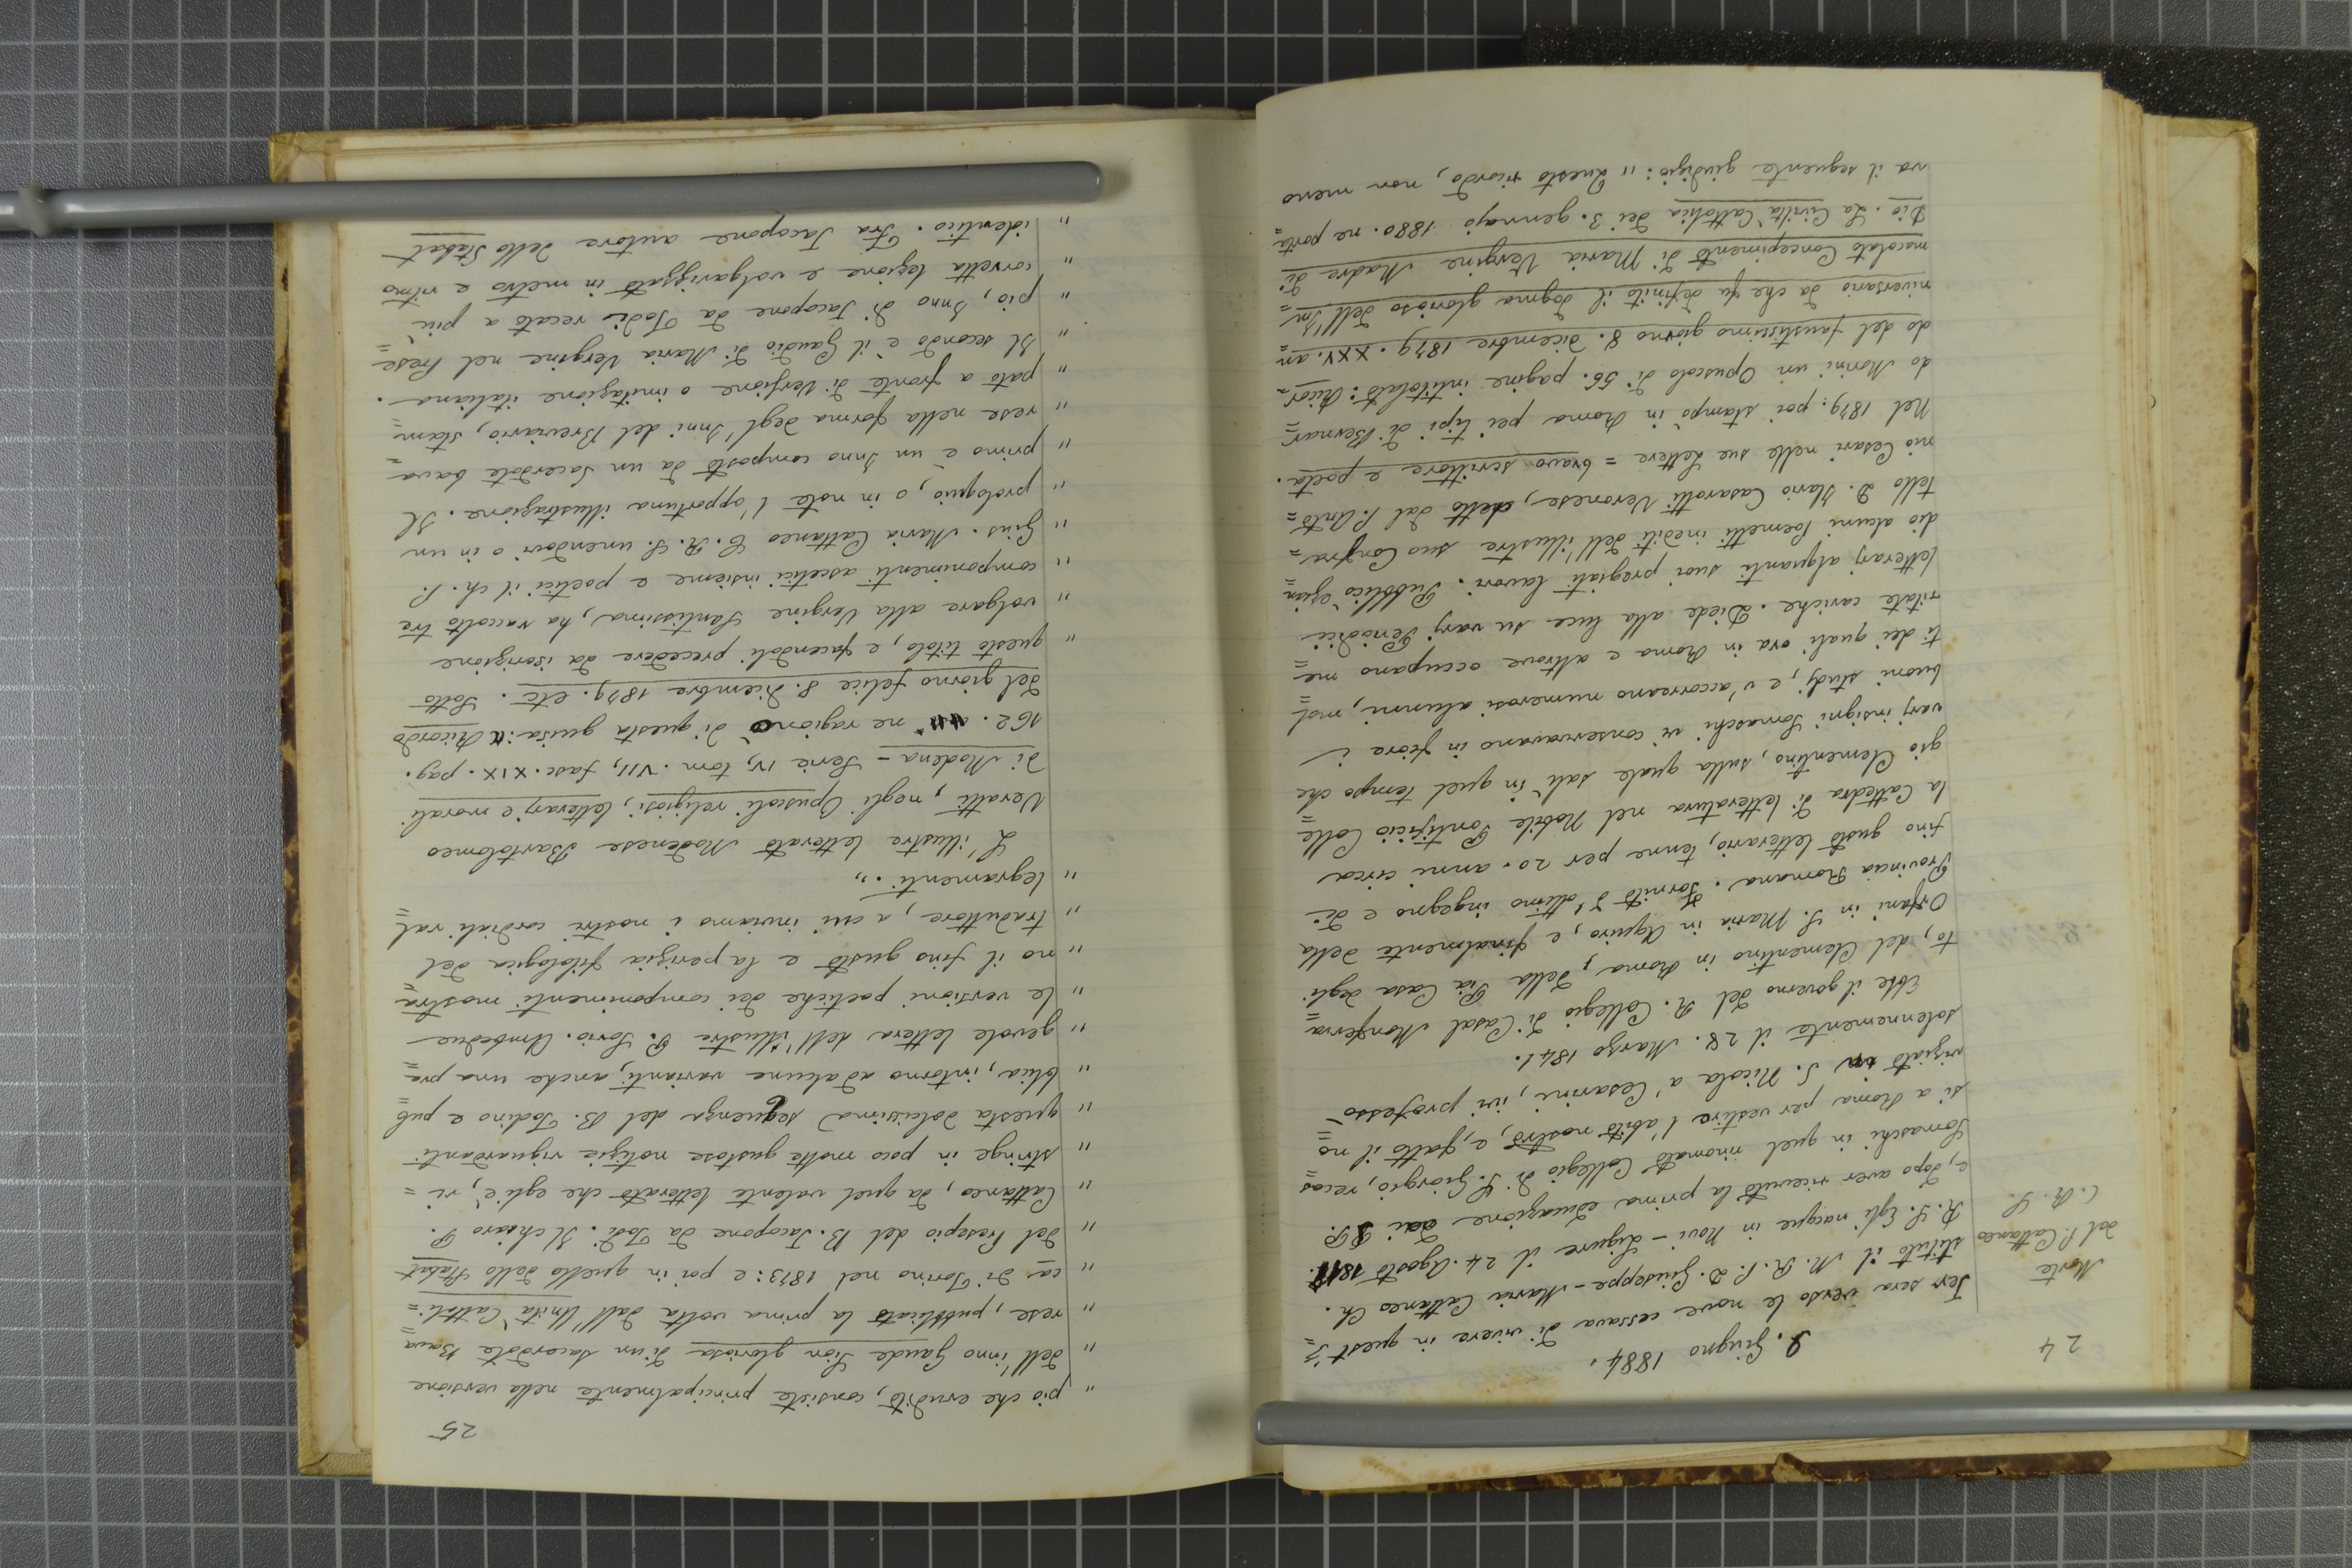 24
9. Giugno 1884.
Morte
del P. Cattaneo
C. R. S.
Jer sera verso le nove cessava di vivere in quest'I=
stituto il M. R. P. D. Giuseppe-Maria Cattaneo Ch.
R. S. Egli nacque in Novi-Ligure il 24. Agosto 1817.
e, dopo aver ricevuto la prima educazione dai PP.
Somaschi in quel rinomato Collegio di S. Giorgio, recos=
si a Roma per vestire l'abito nostro, e, fatto il no=
viziato in S. Nicola a' Cesarini, ivi professò
solennemente il 28. Marzo 1841.
Ebbe il governo del R. Collegio di Casal Monferra=
to, del Clementino in Roma, della Pia Casa degli
Orfani in S. Maria in Aquiro, e, finalmente della
Provincia Romana. Fornito d'ottimo ingegno e di
fino gusto letterario, tenne per 20. anni circa
la Cattedra di letteratura nel Nobile Pontificio Colle=
gio Clementino, sulla quale salì in quel tempo che
varj insigni Somaschi vi conservavano in fiore i
buoni studj, e v'accorreano numerosi alunni, mol=
ti dei quali ora in Roma e altrove occupano me=
ritate cariche. Diede alla luce su varj Periodici
letterarj alquanti suoi pregiati lavori. Pubblicò ezian=
dio alcuni Poemetti inediti dell'illustre suo Confra=
tello D. Ilario Casarotti Veronese, detto dal P. Anto=
nio Cesari nelle sue Lettere = bravo scrittore e poeta.
Nel 1879: poi stampò in Roma pei tipi di Bernar=
do Morini un Opuscolo di 56. pagine intitolato: Ricor=
do del faustissimo giorno 8. dicembre 1879. XXV. an=
niversario da che fu definito il dogma glorioso dell'Im=
macolato Concepimento di Maria Vergine Madre di
Dio. La Civiltà Cattolica dei 3. gennajo 1880. ne porta=
va il seguente giudizio: " Questo ricordo, non meno
25
" pio che erudito, consiste principalmente nella versione
" dell'inno Gaude Sion gloriosa di un sacerdote Bava=
" rese, pubblicato la prima volta dall'Unità Cattoli=
" ca di Torino nel 1873: e poi in quello dello Stabat
" del Presepio del B. Jacopone da Todi. Il chiaro P.
" Cattaneo, da quel valente letterato che egli è, ri=
" stringe in poco molte gustose notizie riguardanti
" questa dolcissima sequenza del B. Todino e pub=
" blica, intorno ad alcune varianti, anche una pre=
" gevole lettera dell'illustre P. Sorio. Ambedue
" le versioni poetiche dei componimenti mostra=
" no il fino gusto e la perizia filologica del
" traduttore, a cui inviamo i nostri cordiali ral=
" legramenti. „
L'illustre letterato Modenese Bartolomeo
Veratti, negli Opuscoli religiosi, letterarj e morali
di Modena - Serie IV, tom. VII, fasc. XIX. pag.
162. ne ragionò di questa guisa: " Ricordo
del giorno felice 8. dicembre 1879. etc. Sotto
" questo titolo, e facendoli precedere da iscrizione
" volgare alla Vergine Santissima, ha raccolto tre
" componimenti ascetici insieme e poetici il ch. P.
" Gius. Maria Cattaneo C. R. S. unendovi o in un
" prologuio, o in nota l'opportuna illustrazione. Il
" primo è un Inno composto da un Sacerdote bava=
" rese nella forma degl'Inni del Breviario, stam=
" pato a fronte di versione o imitazione italiana.
" Il secondo è il Gaudio di Maria Vergine nel Prese=
" pio, Inno di Jacopone da Todi recato a più
" corretta lezione e volgarizzato in metro e ritmo
" identico. Fra Jacopone autore dello Stabat